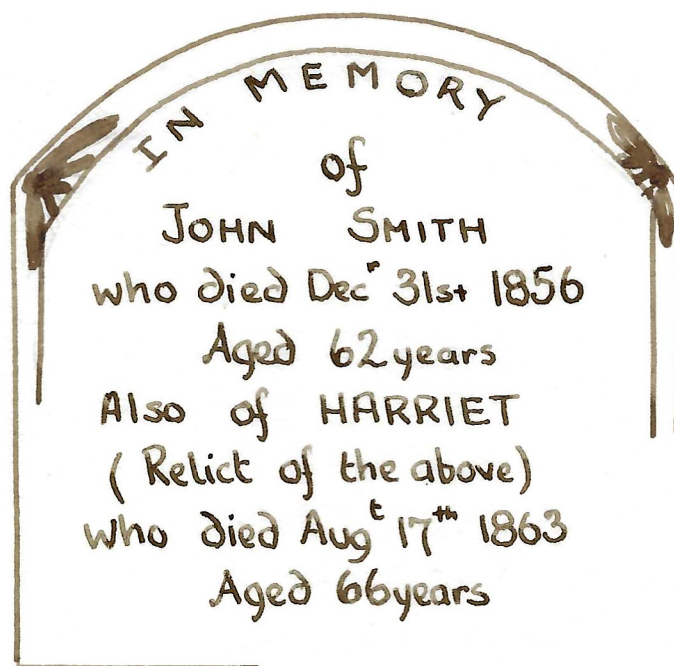 IN MEMORY
of
JOHN SMITH
who died Decʳ 31st 1856
Aged 62 years
Also of HARRIET
( Relict of the above)
who died Augᵗ 17ᵗʰ 1863
Aged 66 years